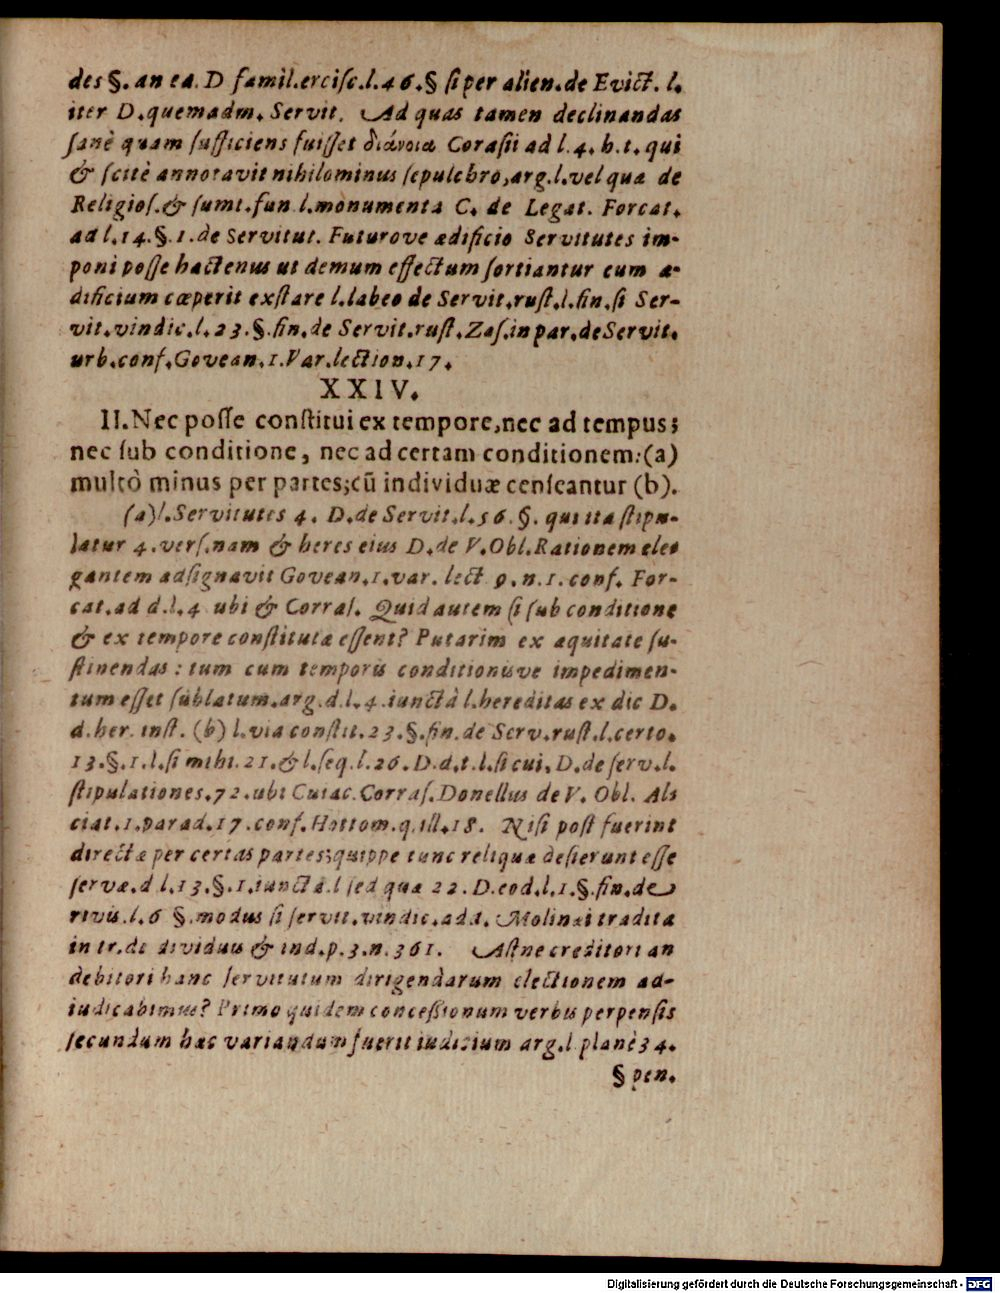 des §. an ea. D famil.erciſc.l.46.§ ſi per alien.de Evict. l.
iter D.quemadm. Servit. Ad quas tamen declinandas
ſanè quam ſufficiens fuiſſet διάνοια Coraſii ad l.4.h.t. qui
& ſcitè annotavit nihilominus ſepulchro,arg.l.vel quæ de
Religioſ.& ſumt.fun l.monumenta C. de Legat. Forcat.
ad l.14.§.1.de Servitut. Futurove ædificio Servitutes im-
poni poſſe hactenus ut demum effectum ſortiantur cum æ-
dificium cœperit exſtare l.labeo de Servit.ruſt.l.fin.ſi Ser-
vit.vindic.l.23.§.fin.de Servit.ruſt.Zaſ.in par.de Servit.
urb.conf.Govean.1.Var.lection.17.
XXIV.
II.Nec poſſe conſtitui ex tempore,nec ad tempus;
nec ſub conditione, nec ad certam conditionem:(a)
multò minus per partes;cũ individuæ cenſeantur (b).
(a)l.Servitutes 4. D.de Servit.l.56.§. qui ita ſtipu-
latur 4.verſ.nam & heres eius D.de V.Obl.Rationem ele-
gantem adſignavit Govean.1.var. lect 9.n.1.conf. For-
cat.ad d.l.4 ubi & Corraſ. Quid autem ſi ſub conditione
& ex tempore conſtitutæ eſſent? Putarim ex æquitate ſu-
ſtinendas: tum cum temporis conditionisve impedimen-
tum eſſet ſublatum.arg.d.l.4.iunctâ l.hereditas ex die D.
d.her. inſt. (b) l.via conſtit.23.§.fin.de Serv.ruſt.l.certo.
13.§.1.l.ſi mihi.21.& l.ſeq.l.26.D.d.t.l.ſi cui, D.de ſerv.l.
ſtipulationes.72.ubi Cuiac.Corraſ.Donellus de V. Obl. Al-
ciat.1.parad.17.conf.Hottom.q.ill.18. Niſi poſt fuerint
directæ per certas partes;quippe tunc reliquæ deſierunt eſſe
ſervæ.d l.13.§.1.iunctâ.l ſed quæ 22.D.eod.l.1.§.fin.de
rivis.l.6 §.modus ſi ſervit.vindic.add. Molinæi tradita
in tr.de dividuis & ind.p.3.n.361. Aſtne creditori an
debitori hanc ſervitutum dirigendarum electionem ad-
iudicabimus? Primo quidem conceſſionum verbis perpenſis
ſecundum hæc variandum fuerit iudicium arg.l planè 34.
§ pen.
Digitalisierung gefördert durch die Deutsche Forschungsgemeinschaft - DFG